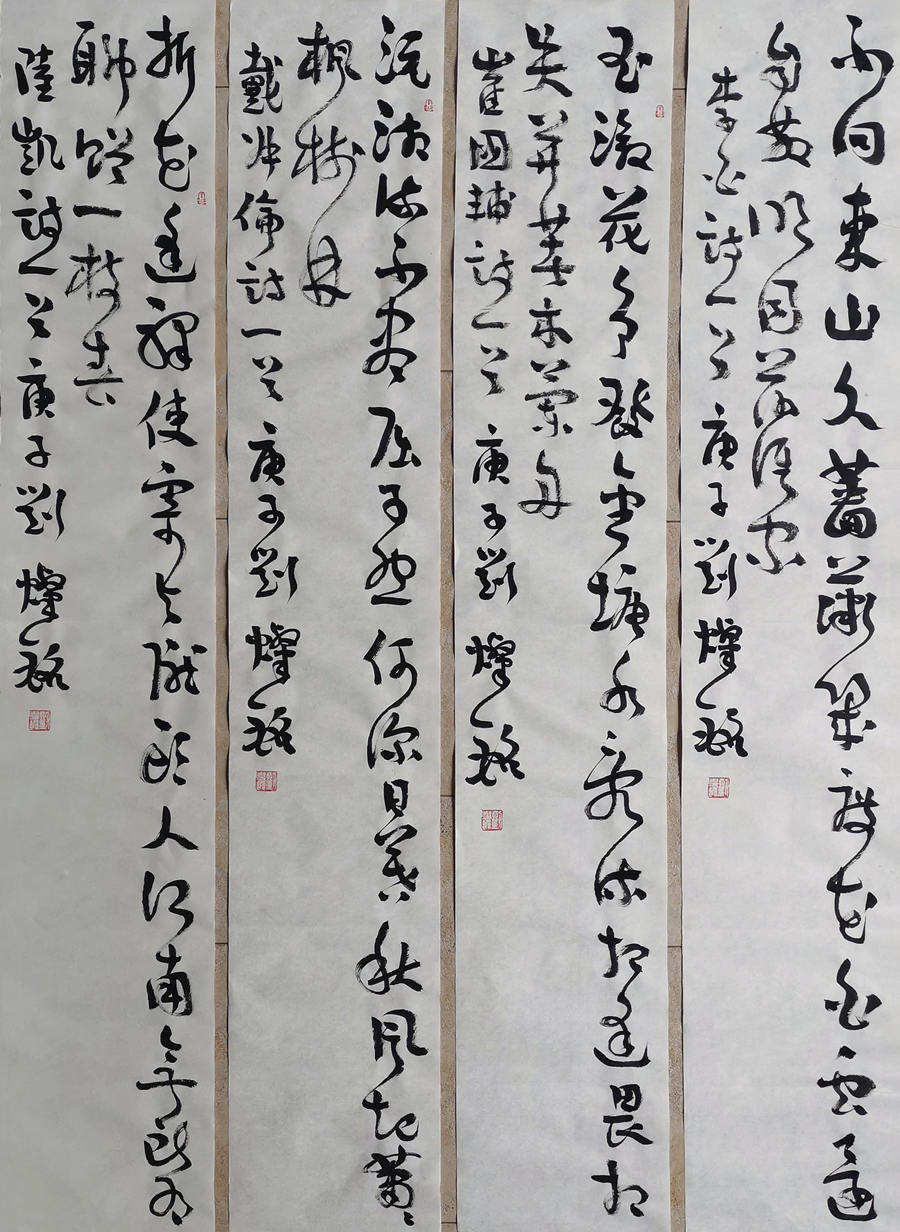 不向東山久薔薇幾度花白雲還
自散明月落誰家
李白詩一首庚子劉燦銘
玉漵花爭發金塘水亂流相逢畏相
失并著木蘭舟
崔國輔詩一首庚子劉燦銘
沅湘流不盡屈子怨何深日暮秋風起蕭〻
楓樹林
戴叔倫詩一首庚子劉燦銘
折花逢驛使寄與隴頭人江南無所有
聊贈一枝春
陸凱詩一首庚子劉燦銘